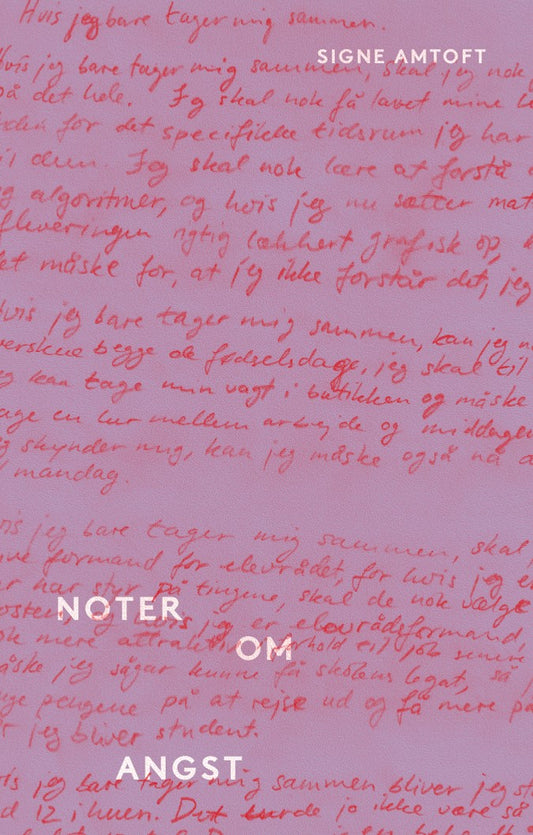 Hvis jeg bare tager mig sammen.
SIGNE AMTOFT
Hvis jeg bare tager mig sammen, skal jeg nok
på det hele. Jeg skal nok få lavet mine
inden for det specifikke tidsrum jeg har
til dem. Jeg skal nok lære at forstå
og algoritmer, og hvis jeg nu sætter mat
afleveringen rigtig lækkert grafisk op,
det måske for, at jeg ikke forstår det, jeg
Hvis jeg bare tager mig sammen, kan jeg
overskue begge de fødselsdage, jeg skal til
jeg kan tage min vagt i butikken og måske
tage en lur mellem arbejde og middagen
jeg skynder mig, kan jeg måske også nå
mandag.
Hvis jeg bare tager mig sammen, skal
formand for elevrådet, for hvis jeg
har styr på tingene, skal de nok vælge
NOTER
og hvis jeg er elevrådsformand,
OM
nok mere attraktiv forhold til job senere
måske jeg sågar kunne få skolens legat, så
pengene på at rejse ud og få mere
jeg bliver student.
ANGST
Hvis jeg bare tager mig sammen bliver jeg
12 i huen. Det burde jo ikke være så